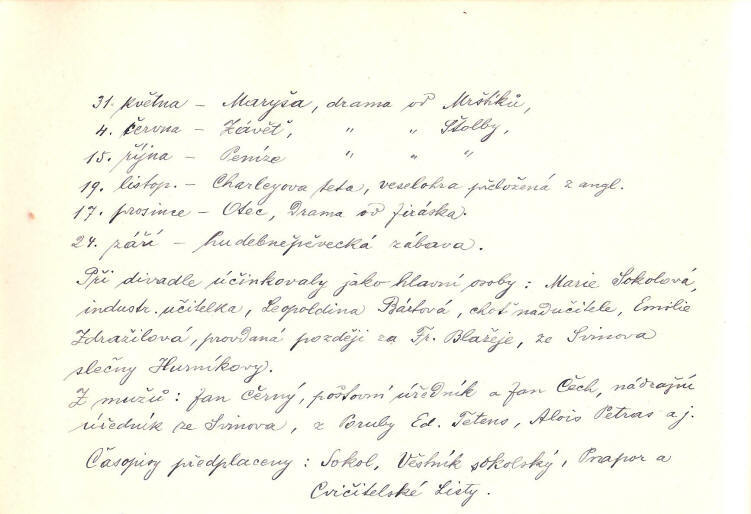 31. května – Maryša, drama od Mrštíků,
4. června – Závěť, " " Štolby,
15. října – Peníze " " "
19. listop. – Charleyova teta, veselohra přeložená z angl.
17. prosince – Otec, Drama od Jiráska.
24. září – hudebněpěvecká zábava.
Při divadle účinkovaly jako hlavní osoby: Marie Sokolová,
industr. učitelka, Leopoldina Bártová, choť nadučitele, Emilie
Zdražilová, provdaná později za Fr. Blažeje, ze Svinova
slečny Hurníkovy.
Z mužů: Jan Černý, poštovní úředník a Jan Čech, nádražní
úředník ze Svinova, z Poruby Ed. Tetens, Alois Petras a j.
Časopisy předplaceny: Sokol, Věstník sokolský, Prapor a
Cvičitelské Listy.